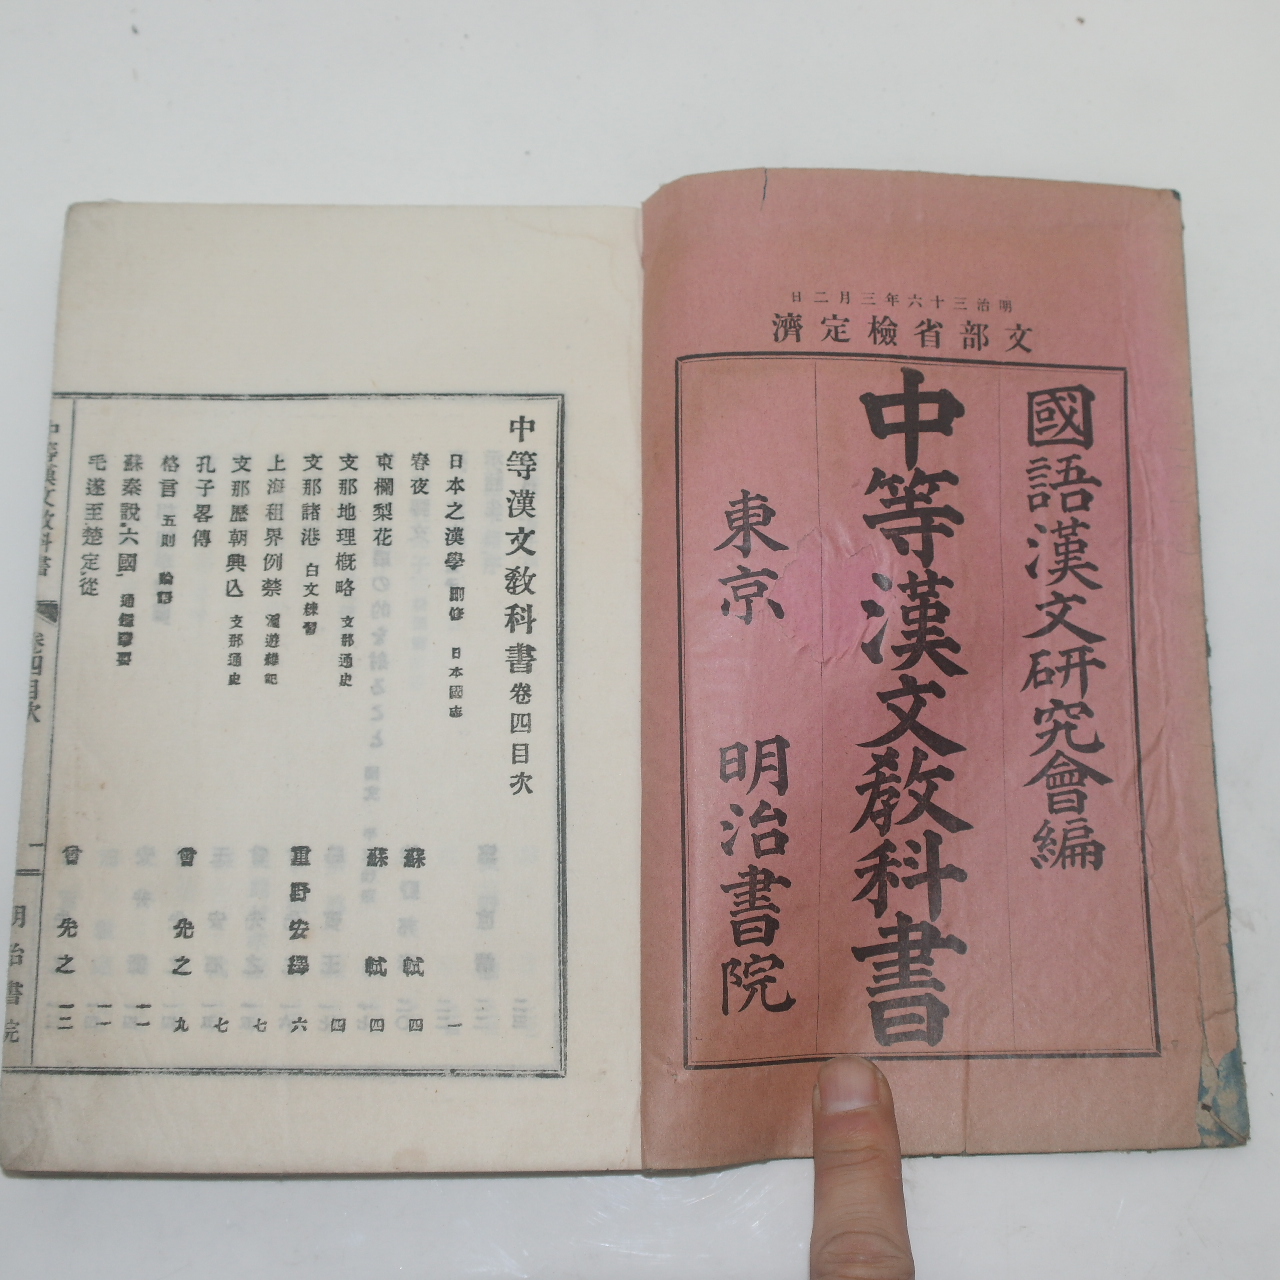 明治三十六年三月二日
文部省檢定濟
國語漢文研究會編
中等漢文敎科書
東京 明治書院
中等漢文敎科書卷四目次
日本之漢學 刪修 日本國志 一
春夜 蘇軾 四
東欄梨花 蘇軾 四
支那地理槪略 支那通史 四
支那諸港 白文練習 重野安繹 六
上海租界例禁 滬遊雜記 七
支那歷朝興亡 支那通史 七
孔子畧傳 曾先之 九
格言 五則 論語 一一
蘇秦說六國 通鑑擥要 一一
毛遂至楚定從 曾先之 一三
中等漢文敎科書 卷四目次 一 明治書院